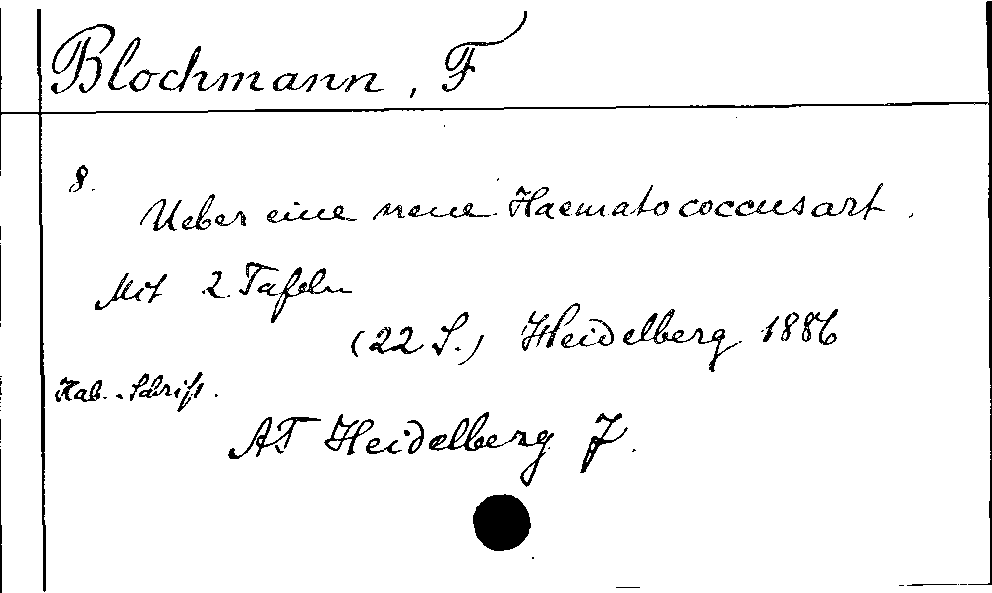 Blochmann, F
8.
Ueber eine neue Haematococcusart.
Mit 2 Tafeln
(22 S.) Heidelberg 1886
Hab.-Schrift.
AT Heidelberg J.